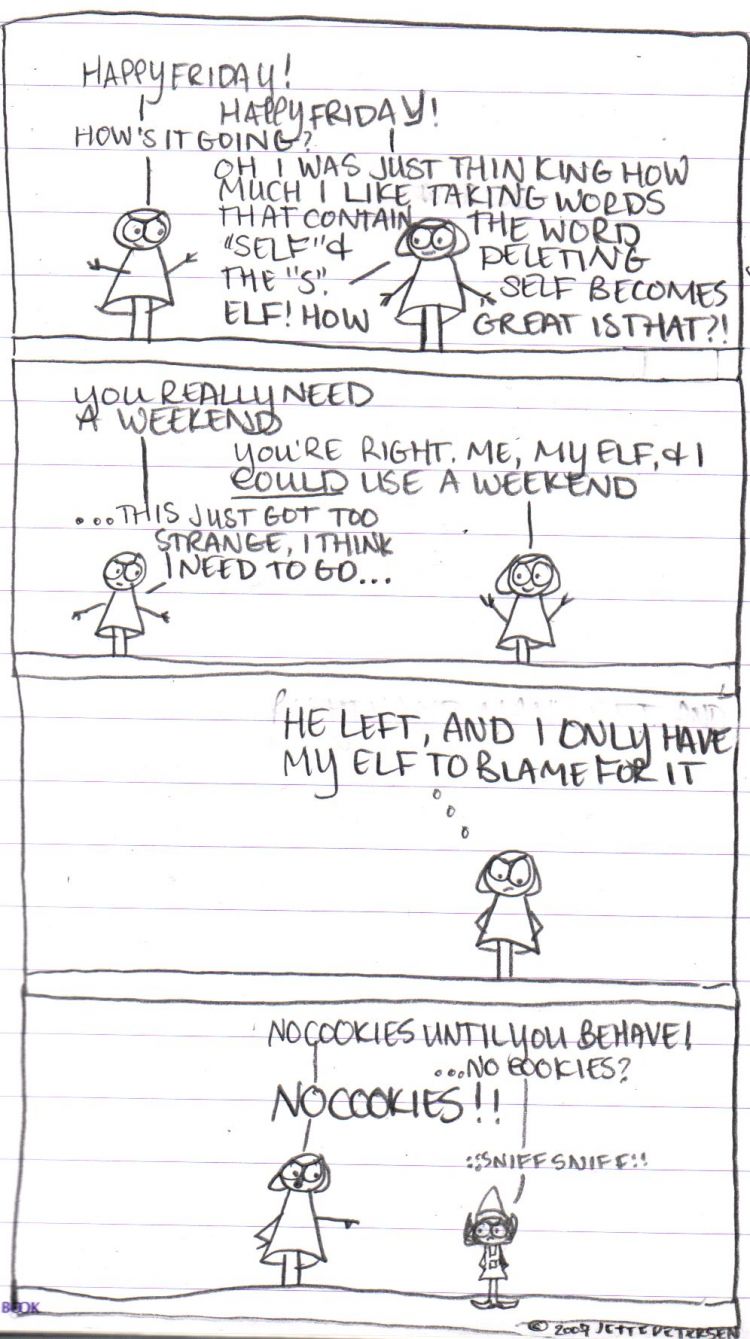 HAPPY FRIDAY!
HAPPY FRIDAY!
HOW'S IT GOING?
OH I WAS JUST THINKING HOW
MUCH I LIKE TAKING WORDS
THAT CONTAIN THE WORD
"SELF" & DELETING
THE "S". SELF BECOMES
ELF! HOW GREAT IS THAT?!
YOU REALLY NEED
A WEEKEND
YOU'RE RIGHT. ME, MY ELF, & I
COULD USE A WEEKEND
...THIS JUST GOT TOO
STRANGE, I THINK
I NEED TO GO...
HE LEFT, AND I ONLY HAVE
MY ELF TO BLAME FOR IT
NO COOKIES UNTIL YOU BEHAVE!
...NO COOKIES?
NO COOKIES!!
::SNIFF SNIFF::
BOOK
© 2009 JETTE PETERSEN